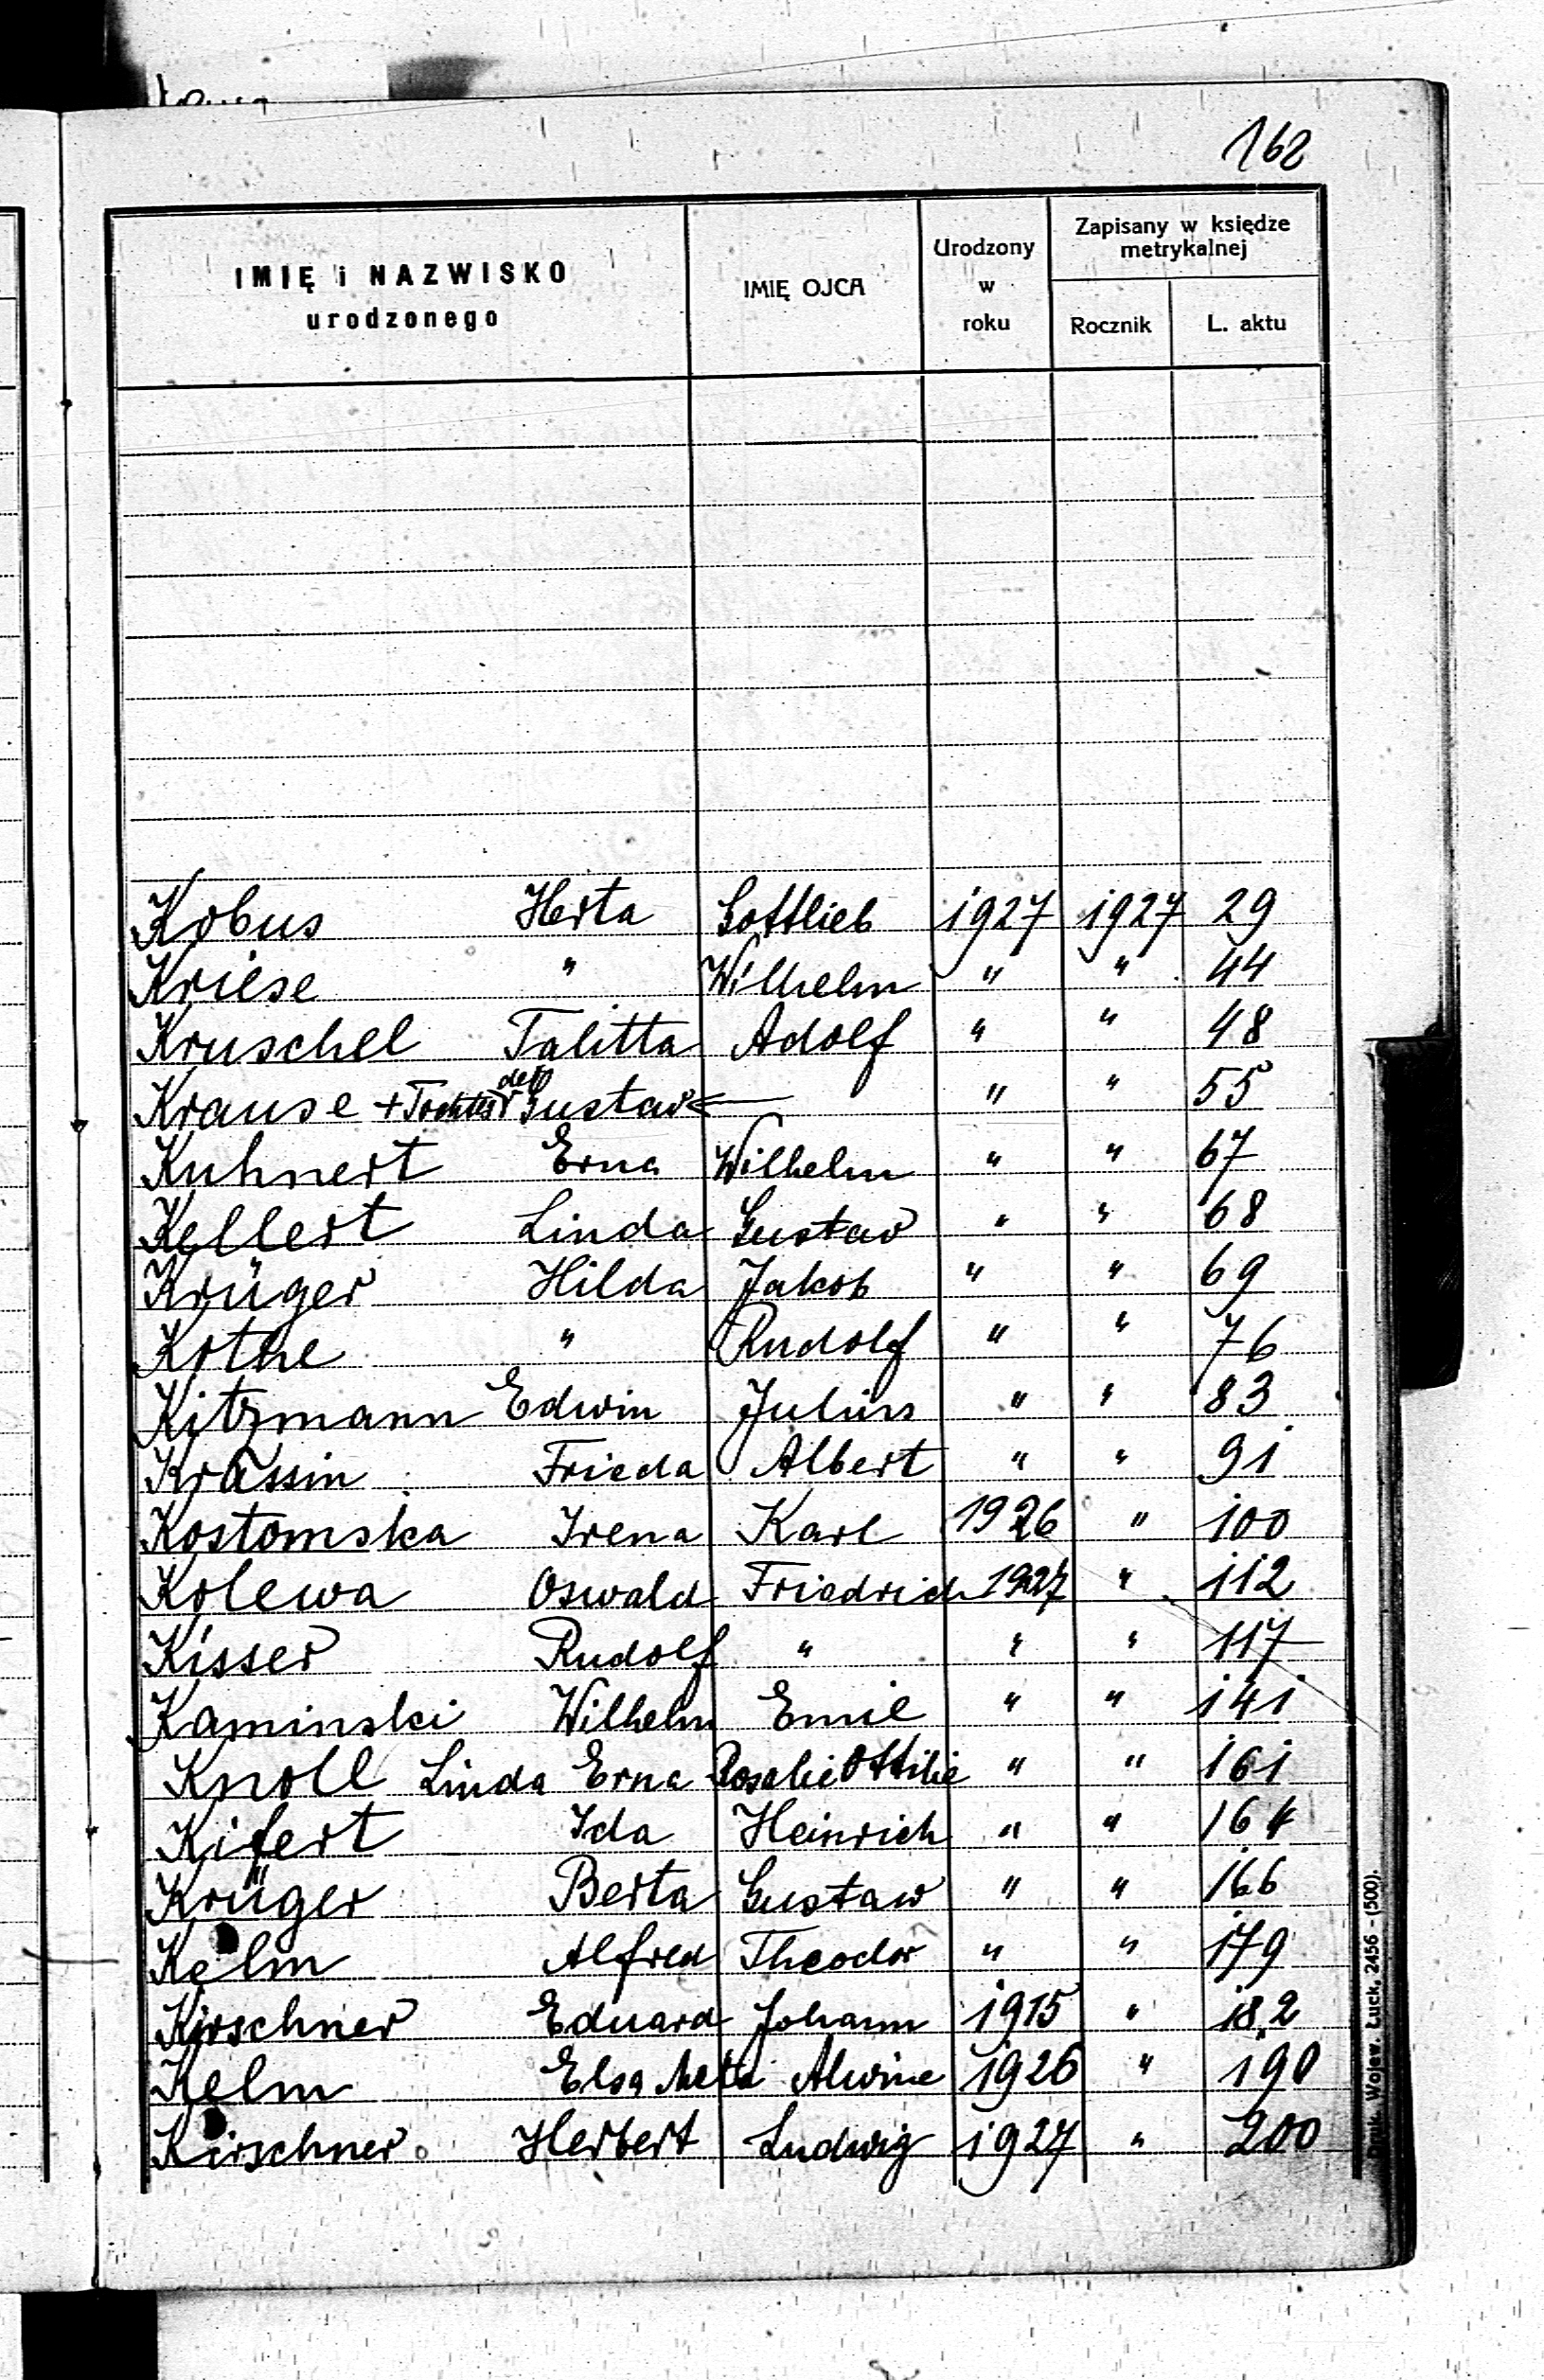 162
IMIĘ i NAZWISKO urodzonego IMIĘ OJCA Urodzony w roku Zapisany w księdze metrykalnej Rocznik L. aktu
Kobus Herta Gottlieb 1927 1927 29
Kriese " Wilhelm " " 44
Kruschel Talitta Adolf " " 48
Krause + Tochter des Gustav " " 55
Kuhnert Erna Wilhelm " " 67
Kellert Linda Gustav " " 68
Krüger Hilda Jakob " " 69
Kothe " Rudolf " " 76
Kitzmann Edwin Julius " " 83
Krassin Frieda Albert " " 91
Kostomska Irena Karl 1926 " 100
Kolewa Oswald Friedrich 1927 " 112
Kisser Rudolf " " " 117
Kaminski Wilhelm Emil " " 141
Knoll Linda Erna Rosalie Ottilie " " 161
Kifert Ida Heinrich " " 164
Krüger Berta Gustaw " " 166
Kelm Alfred Theodor " " 179
Kirschner Eduard Johann 1915 " 182
Kelm Elsa Meta Alwine 1926 " 190
Kirschner Herbert Ludwig 1927 " 200
Druk. Wojew. Łuck, 2456 - (500).